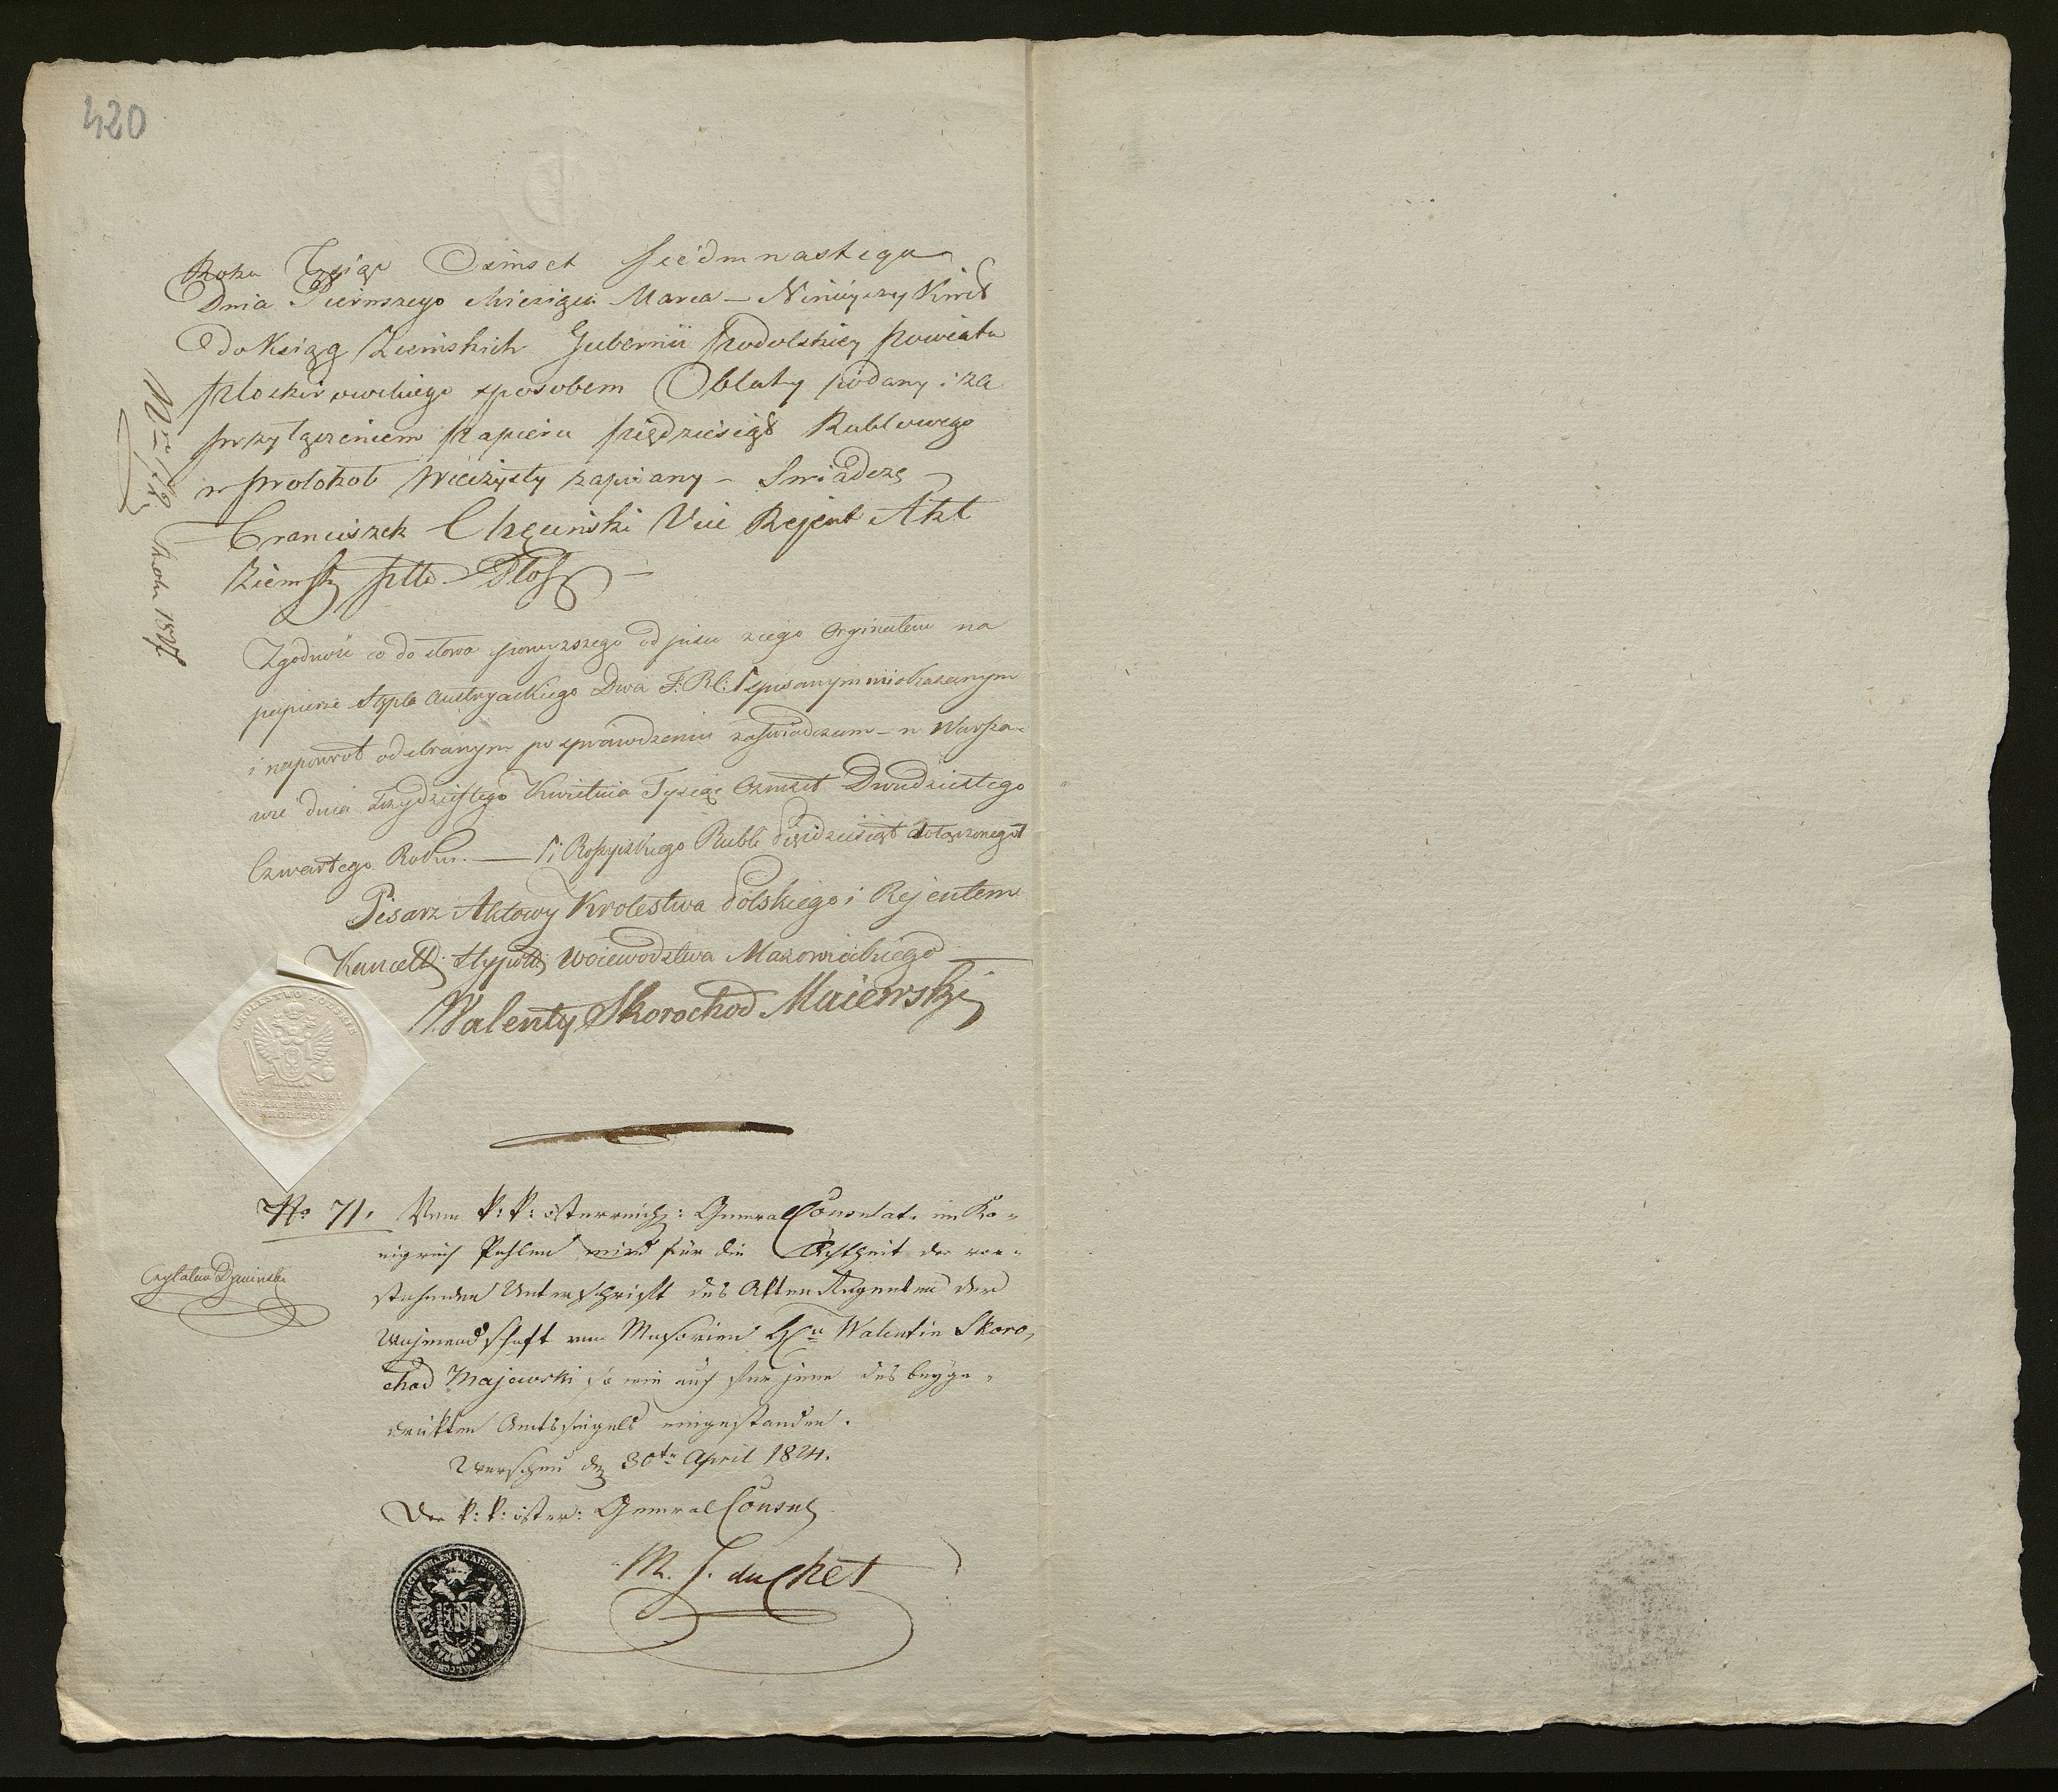 420
Roku Tysiąc Osmset Siedmnastego
Dnia Pierwszego Miesiąca Marca – Ninieyszy Kwit
do Ksiąg Ziemskich Gubernii Podolskiey Powiatu
Płoskirowskiego sposobem Oblaty podany i za
przyłączeniem Papieru piędziesiąt Rublowego
w protokoł Wieczysty zapisany – Swiadczę
Franciszek Vice Rejent Akt
Ziemsk Płos
Roku 1817
Zgodność co do słowa powyzszego odpisu z iego Orginałem na
papierze Stypla Austryackiego Dwa F: R: Spisanym mi okazanym
i napowrot odebranym po sprawdzeniu zaświadczam – w Warsza-
wie dnia Trzydziestego Kwietnia Tysiąc Osmset Dwudziestego
Czwartego Roku. — Rossyiskiego Rubli Pięćdziesiąt dołączonego
Pisarz Aktowy Krolestwa Polskiego i Rejentem
Kancell: Hypott: Woiewodztwa Mazowieckiego
Walenty Skorochod Maiewski
KROLESTWO POLSKIE
No 71. Vom k: k: österreich: General Consulate im Kö-
nigreich Pohlen wird für die Ächtheit der vor-
stehenden Unterschrift des Akten Regenten der
Wojewodschaft von Masovien H Walentin Skoro-
chod Majewski so wie auch für jene des beyge-
drükten Amtssiegels eingestanden.
Warschau den 30ten April 1824.
Der k: k: öster: General Consul